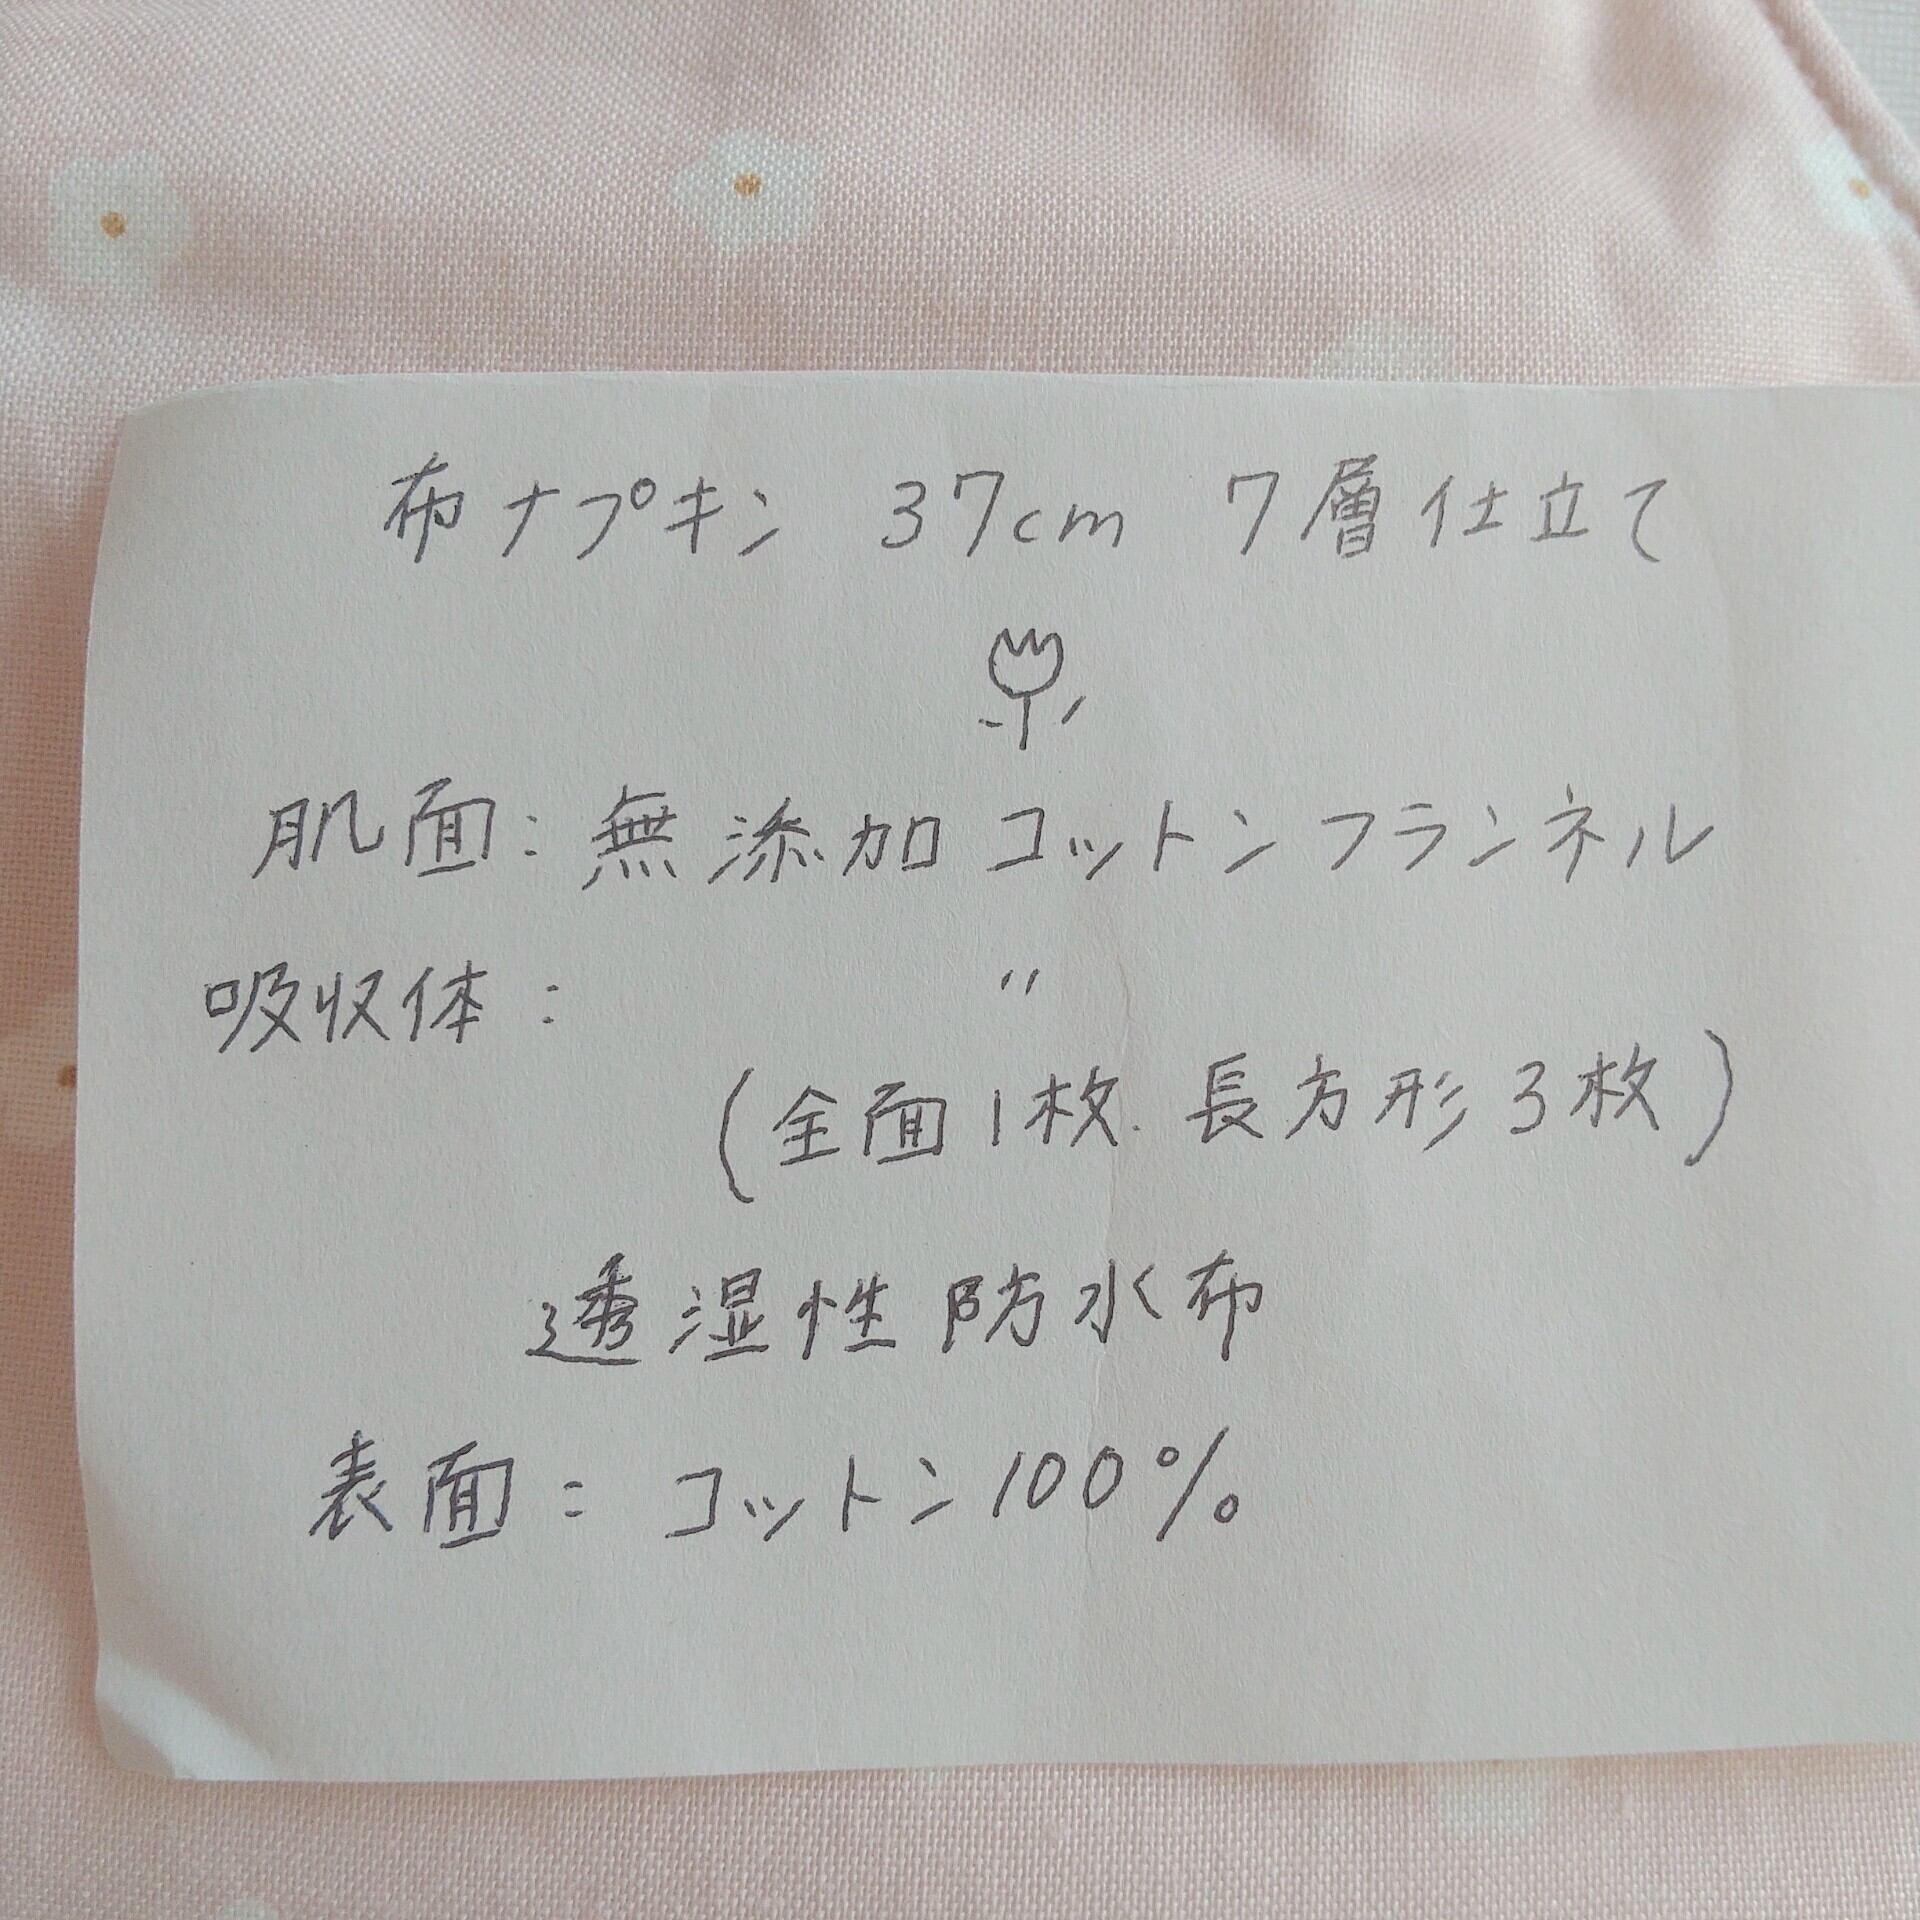 布ナプキン 37cm 7層仕立て
肌面:無添加コットンフランネル
吸収体: 〃
(全面1枚.長方形3枚)
透湿性防水布
表面:コットン100%